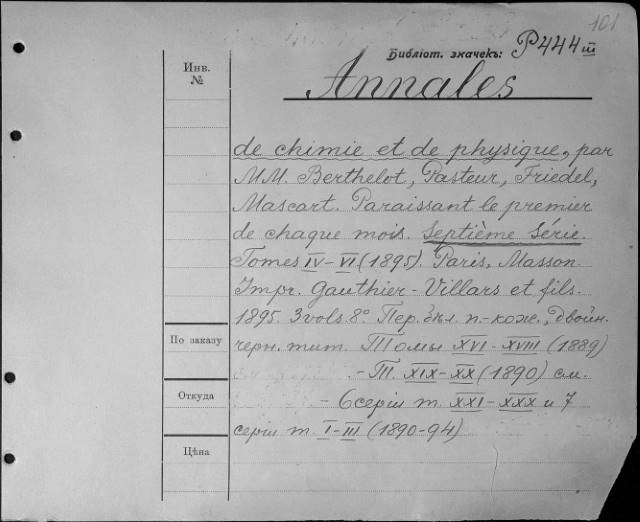 101
Библіот. значекъ: P444 III
Инв.
№
Annales
de chimie et de physique, par
MM. Berthelot, Pasteur, Friedel,
Mascart. Paraissant le premier
de chaque mois. Septième Série.
Tomes IV–VI (1895). Paris, Masson.
Impr. Gauthier-Villars et fils.
1895. 3 vols. 8° Пер. бѣл. п-коже, двойн.
По заказу
черн. тит. Томы XVI–XVIII (1889)
–Т. XIX–XX (1890) см.
Откуда
– 6 серіи т. XXI–XXX и 7
серіи т. I–III (1890-94)
Цѣна